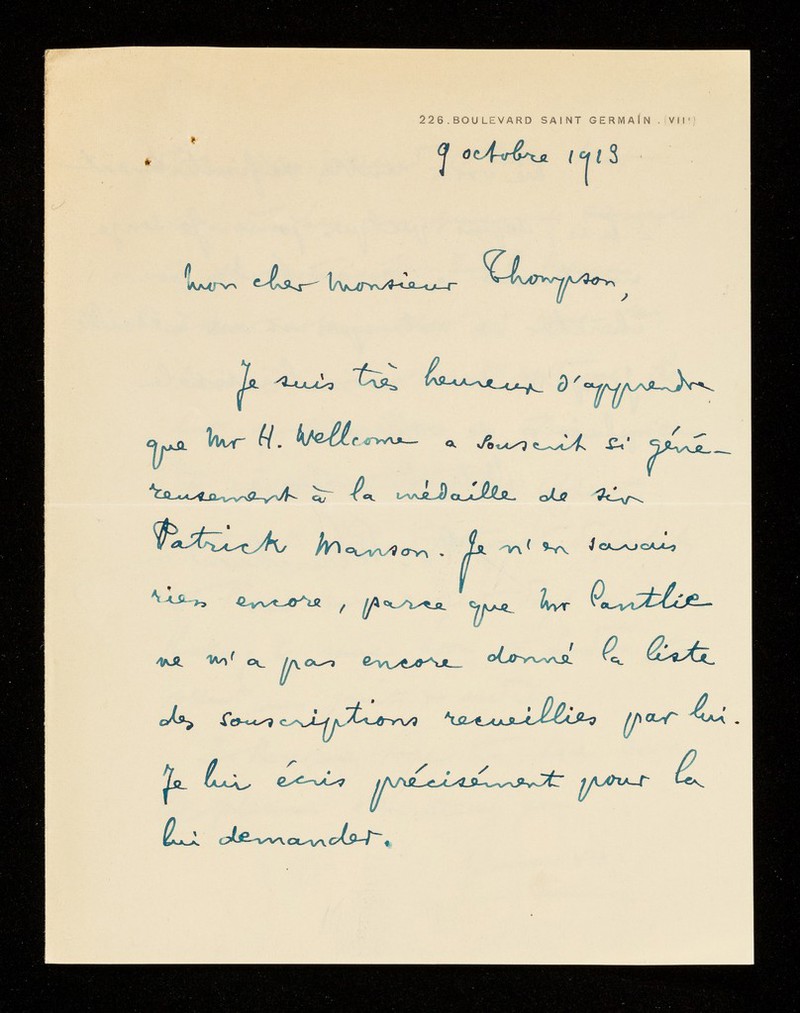 226. BOULEVARD SAINT GERMAIN. (VIIᵉ)
9 octobre 1913
Mon cher Monsieur Thompson,
Je suis très heureux d'apprendre
que Mr H. Wellcome a souscrit si géné-
reusement à la médaille de sir
Patrick Manson. Je n'en savais
rien encore, parce que Mr Cantlie
ne m'a pas encore donné la liste
des souscriptions recueillies par lui.
Je lui écris précisément pour la
lui demander.